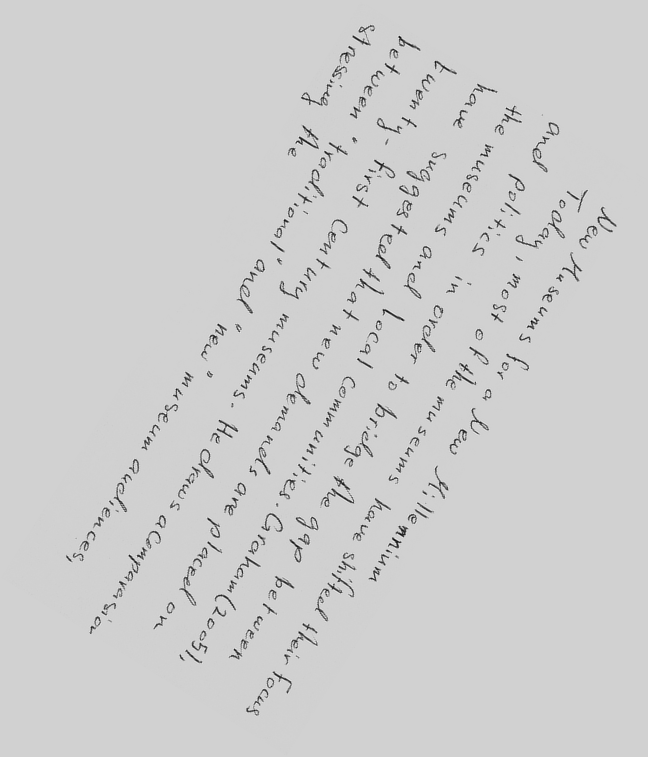 New Museums for a New Millemnium
Today, most of the museums have shifted their focus
and politics in order to bridge the gap between
the museums and local communities. Graham (2005),
have suggested that new demands are placed on
twenty-first century museums. He draws a comparasion
between "traditional" and "new" museum audiences,
stressing the